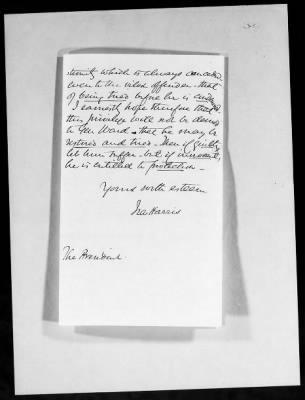 ternity which is always conceded
even to the vilest offender - that
of being tried before he is
I earnestly hope therefore that
this privilege will not be denied
to Gen Ward - that he may be
restored and tried - Then if guilty
let him suffer - but if innocent,
he is entitled to protection -
Yours with esteem
Ira Harris
The President